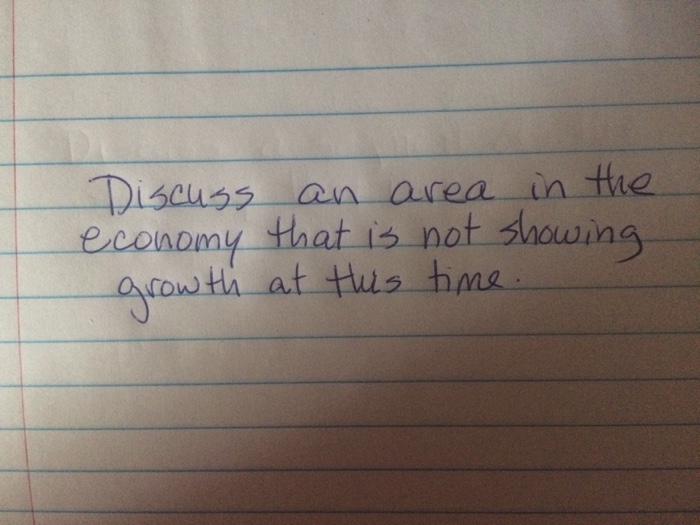 Discuss an area in the
economy that is not showing
growth at this time.